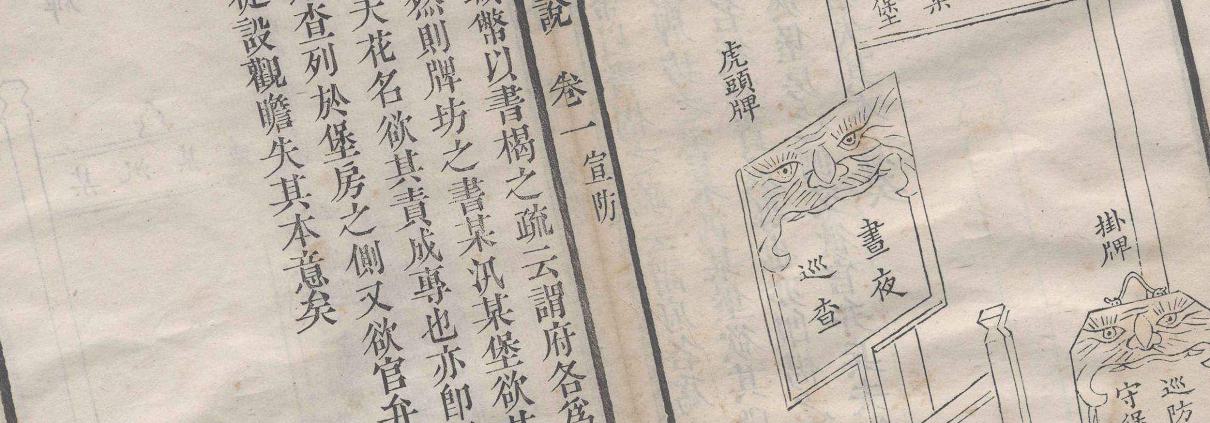 掛牌
巡防
守
堡
虎頭牌
晝夜
巡查
說 卷一 宣防
幣以書楬之疏云謂府各爲
然則牌坊之書某汛某堡欲
花名欲其責成專也亦即
查列於堡房之側又欲官弁
設觀瞻失其本意矣